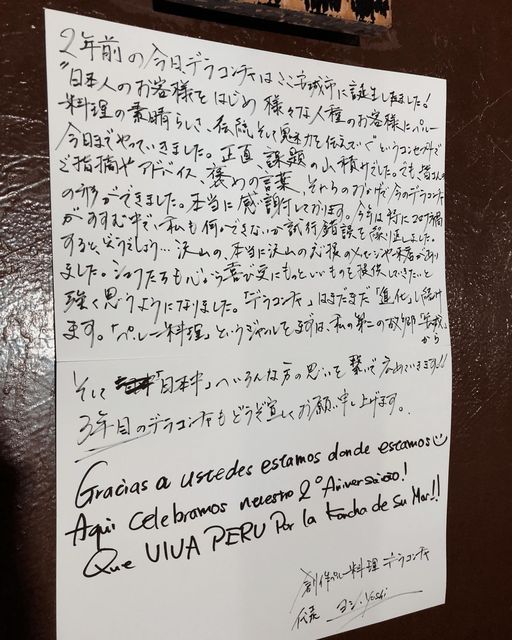 2年前の今日、デラコンチャはここ安城市に誕生しました!
"日本人のお客様をはじめ 様々な人種のお客様にペルー
料理の素晴らしさ、伝統、そして魅力を伝えていく"というコンセプトで
今日までやっていきました。正直、課題の山積みでした。でも皆さんの
ご指摘やアドバイス、褒めの言葉、それらのおかげで今のデラコンチャ
の形ができました。本当に感謝しております。今年は特にコロナ禍
がすすむ中で、私も何ができないか試行錯誤を繰り返しました。
すると、どうでしょう… 沢山の、本当に沢山の応援のメッセージや来店があり
ました。シェフたちも心から喜び更にもっといいものを提供していきたいと
強く思うようになりました。「デラコンチャ」はまだまだ「進化」し続け
ます。「ペルー料理」というジャンルをまずは、私の第二の故郷「安城」から
そして「日本中」へいろんな方の思いを繋いで広めていきます!!
3年目のデラコンチャもどうぞ宜しくお願い申し上げます。
Gracias a ustedes estamos donde estamos
Aqui celebramos nuestro 2° Aniversario!
Que VIVA PERU Por la Concha de Su Mar!!
創作ペルー料理 デラコンチャ
代表 ヨシ・Yoshi